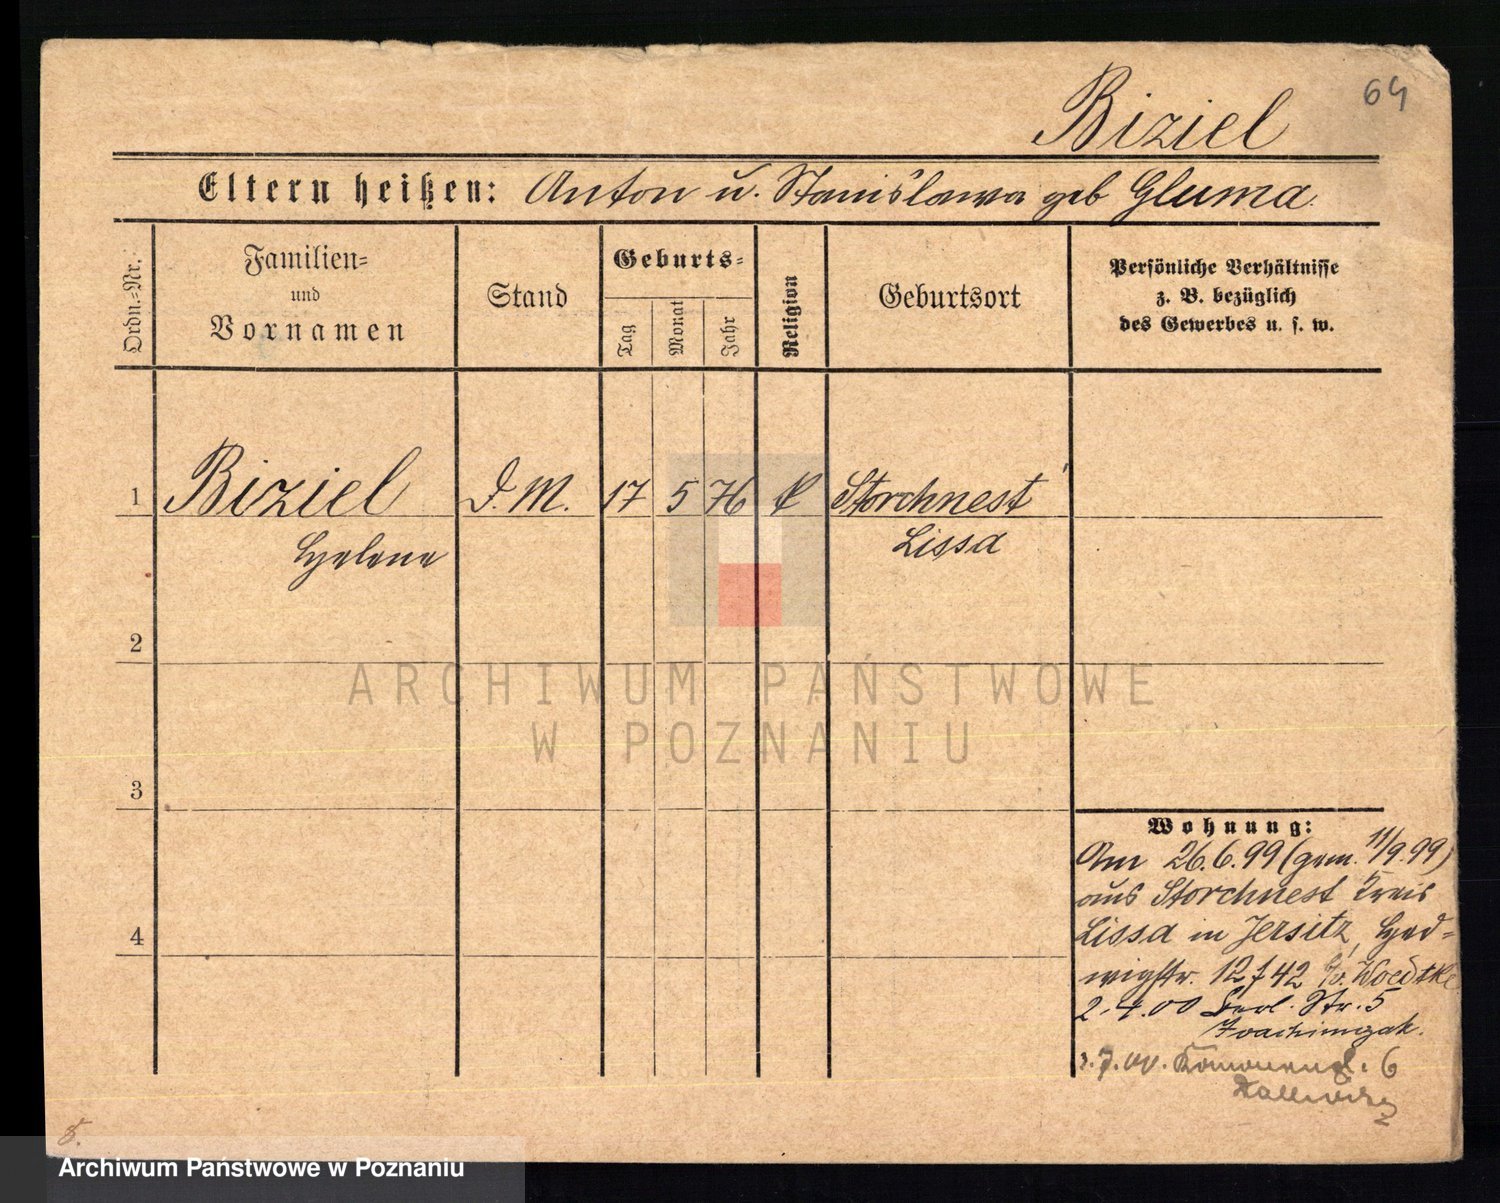 64
Biziel
Eltern heißen: Anton u. Stanislawa geb Gluma.
Ordn.-Nr.
Familien-
und
Vornamen
Stand
Geburts-
Tag
Monat
Jahr
Religion
Geburtsort
Persönliche Verhältnisse
z. B. bezüglich
des Gewerbes u. s. w.
1 Biziel D. M. 17 5 76 k Storchnest
Helene Lissa
2
3
4
ARCHIWUM PAŃSTWOWE
W POZNANIU
Wohnung:
Am 26.6.99 (gem. 11/9.99)
aus Storchnest Kreis
Lissa in Jersitz, Hed-
wigstr. 12 f 42 b/v. Woedtke
2.4.00 Berl. Str. 5
7.00. 6
Archiwum Państwowe w Poznaniu